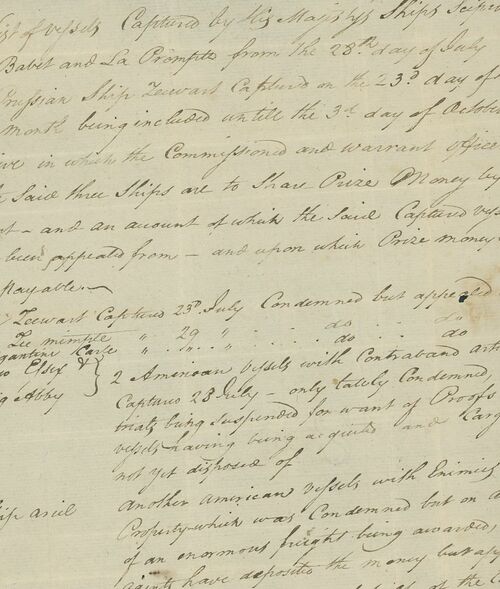 ist of vessels Captured by His Majestys Ships Scipio
Babet and La Prompte from the 28th day of July
Prussian Ship Zeewart Captured on the 23d day of
Month being included untill the 3d day of October
ive in which the Commissioned and warrant officers
said three Ships are to Share Prize Money by
nt - and an account of which the said Captured ves
been appealed from - and upon which Prize money
Payable.
Zeewart Captured 23d July Condemned but appealed
Zee mimple " 29 " do do
gantine Carle " " " do do
Elsey &
g Abby
2 American vessels with Contraband arti
Captured 28 July - only lately Condemned,
trials being suspended for want of Proofs
vessels having being acquited and Carg
not yet disposed of
hip ariel
another American vessels with Enimies
Property which was Condemned but on a
of an enormous freight being awarded,
agents have deposited the money but app